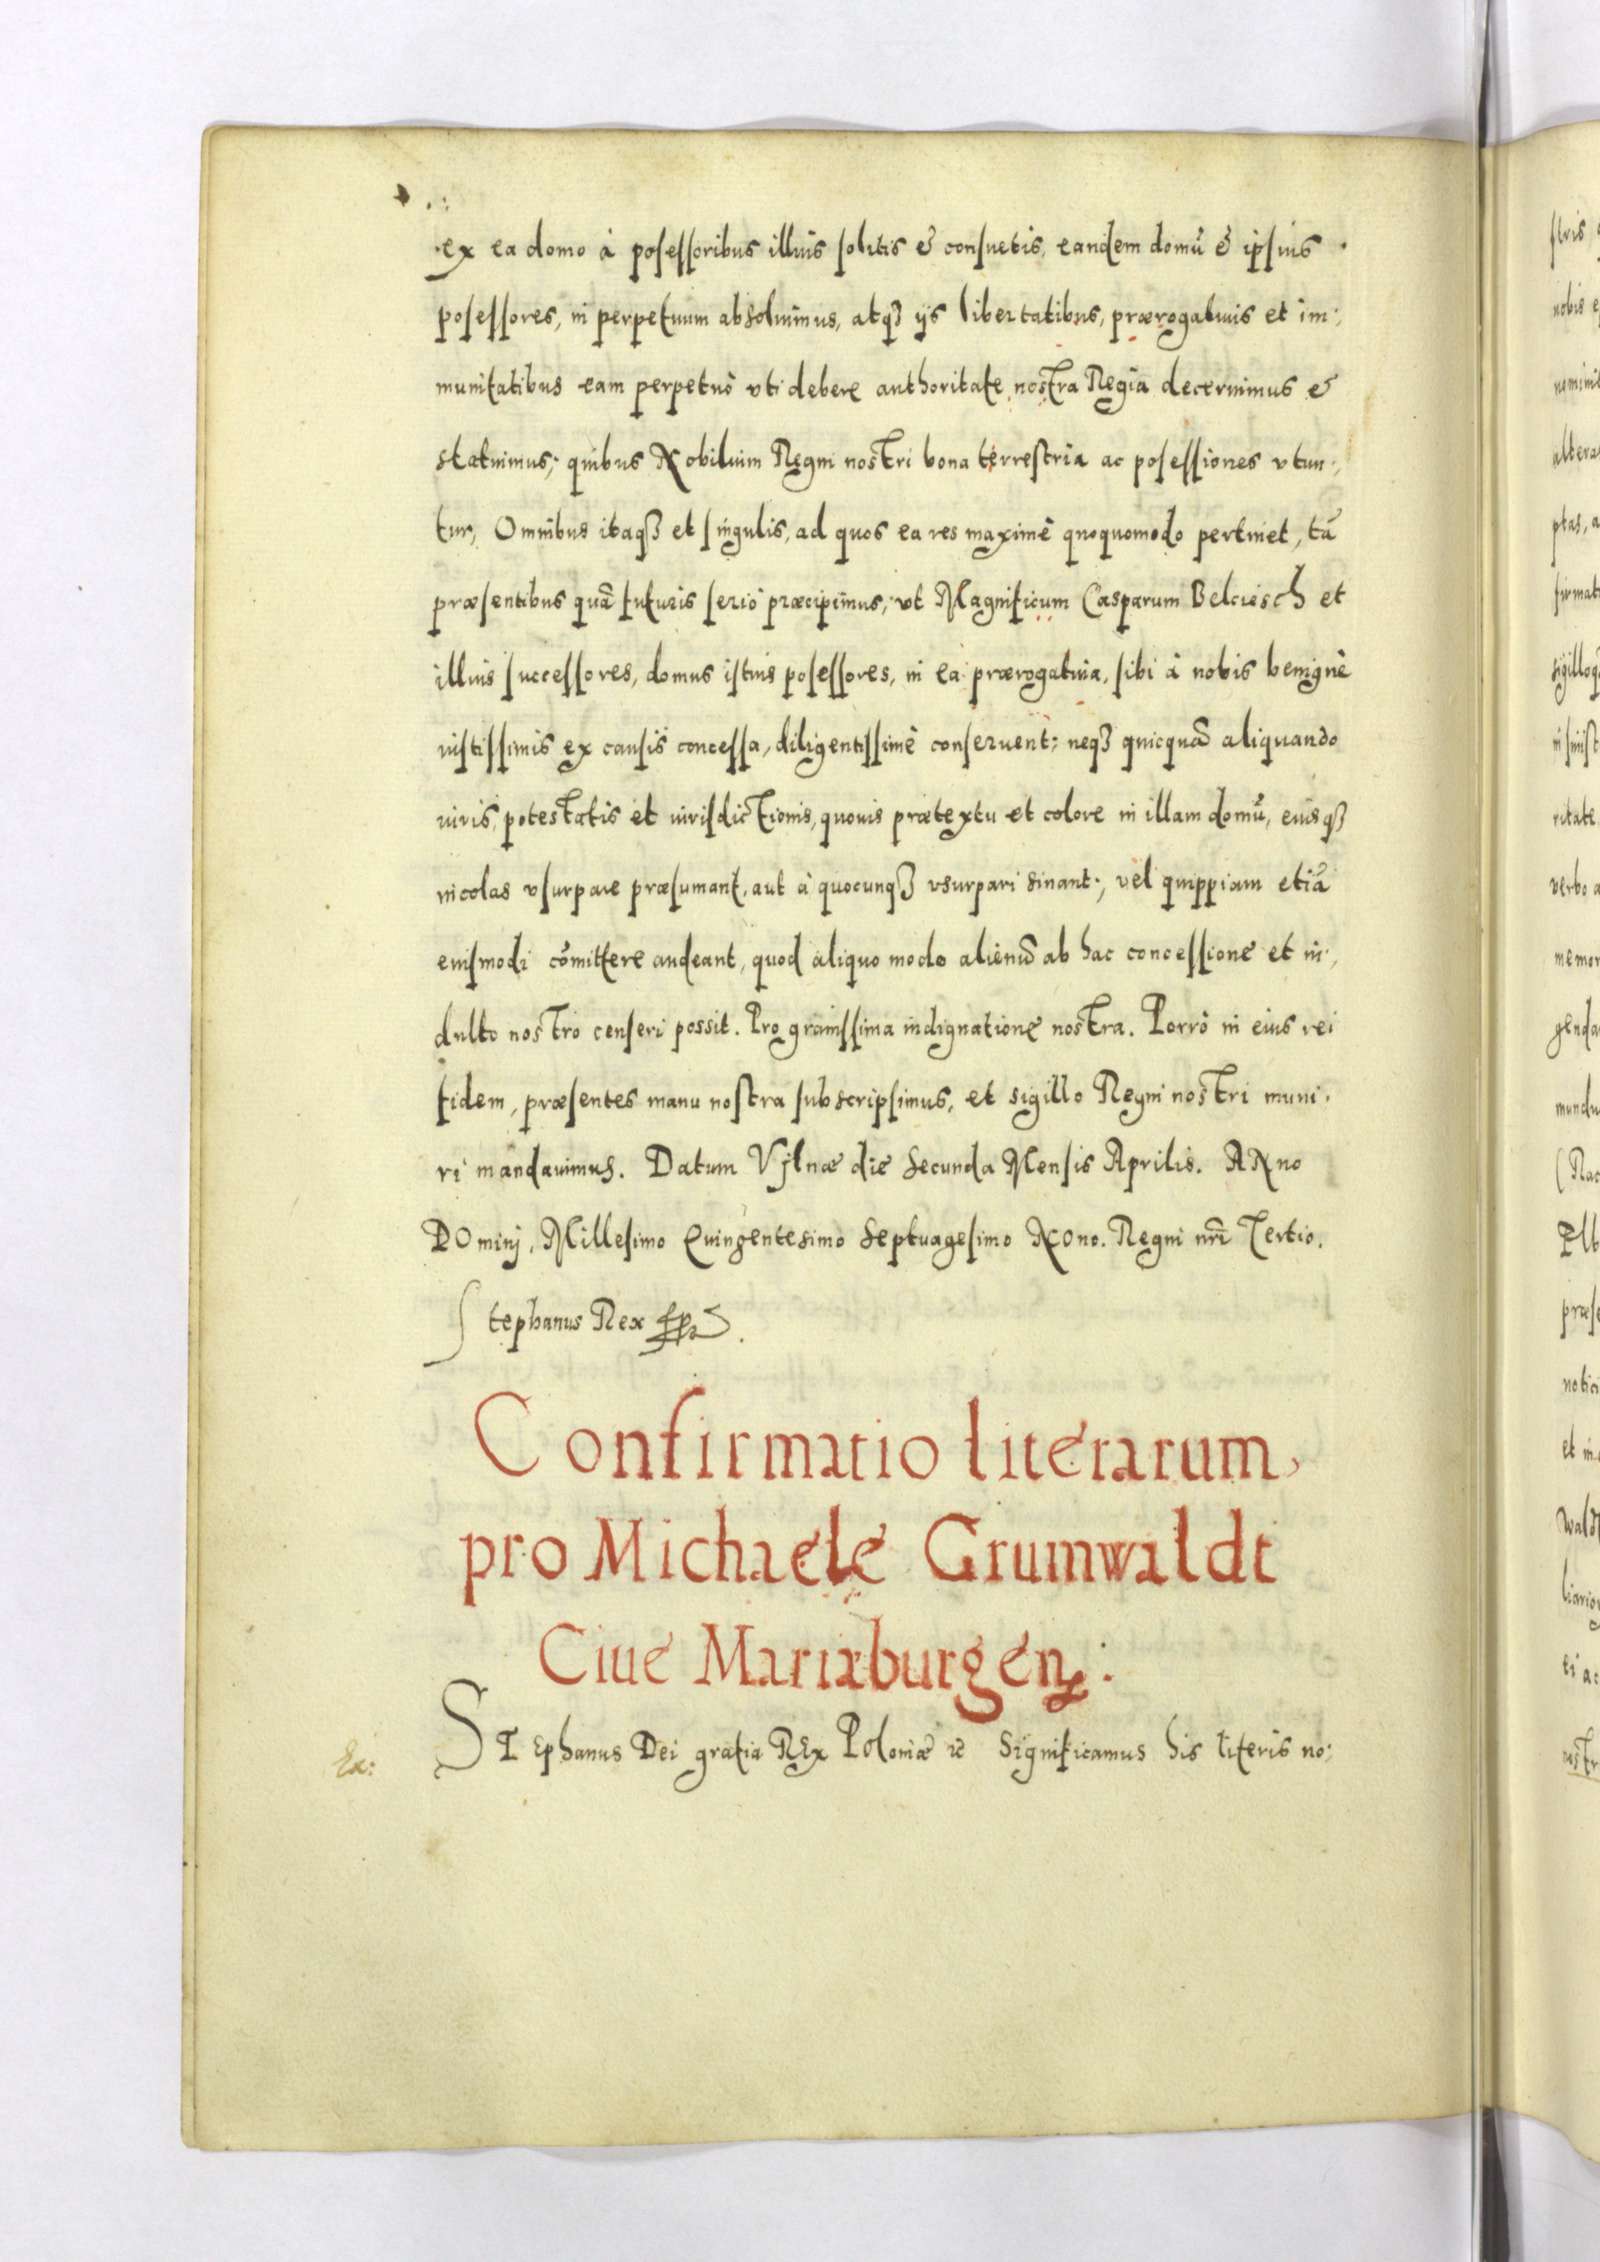 ex ea domo à posessoribus illius solitis & consuetis, eandem domũ & ipsius
posessores, in perpetuum absoluimus, atqꝫ ijs libertatibus, prærogatiuis et im:,
munitatibus eam perpetuò vti debere authoritate nostra Regia decernimus &
statuimus; quibus Nobilium Regni nostri bona terrestria ac posessiones vtun:,
tur, Omnibus itaqꝫ et singulis, ad quos ea res maximè quoquomodo pertinet, tã
præsentibus quã futuris seriò præcipimus, vt Magnificum Casparum Belciesch et
illius successores, domus istius posessores, in ea prærogatiua, sibi à nobis benignè
iustissimis ex causis concessa, diligentissimè conseruent; neqꝫ quicquã aliquando
iuris, potestatis et iurisdictionis, quouis prætextu et colore in illam domũ, eiusqꝫ
incolas vsurpare præsumant, aut à quocunqꝫ vsurpari sinant; vel quippiam etiã
eiusmodi cõmittere audeant, quod aliquo modo alienũ ab hac concessione et in:,
dulto nostro censeri possit. Pro grauissima indignatione nostra. Porrò in eius rei
fidem, præsentes manu nostra subscripsimus, et sigillo Regni nostri muni:
ri mandauimus. Datum Vylnæ die secunda Mensis Aprilis. ANno
DOminj, Millesimo Quingentesimo Septuagesimo NOno. Regni nr̃i Tertio.
Stephanus Rex
Confirmatio literarum,
pro Michaele Grumwaldt
Ciue Mariæburgen:
Ex: STEphanus Dei gratia REx POloniæ &c Significamus his literis no: